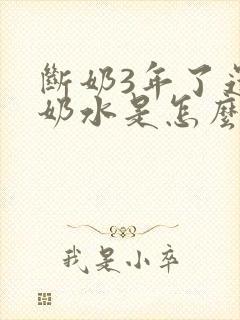 斷奶3年了還
奶水是怎麼
我是小卒